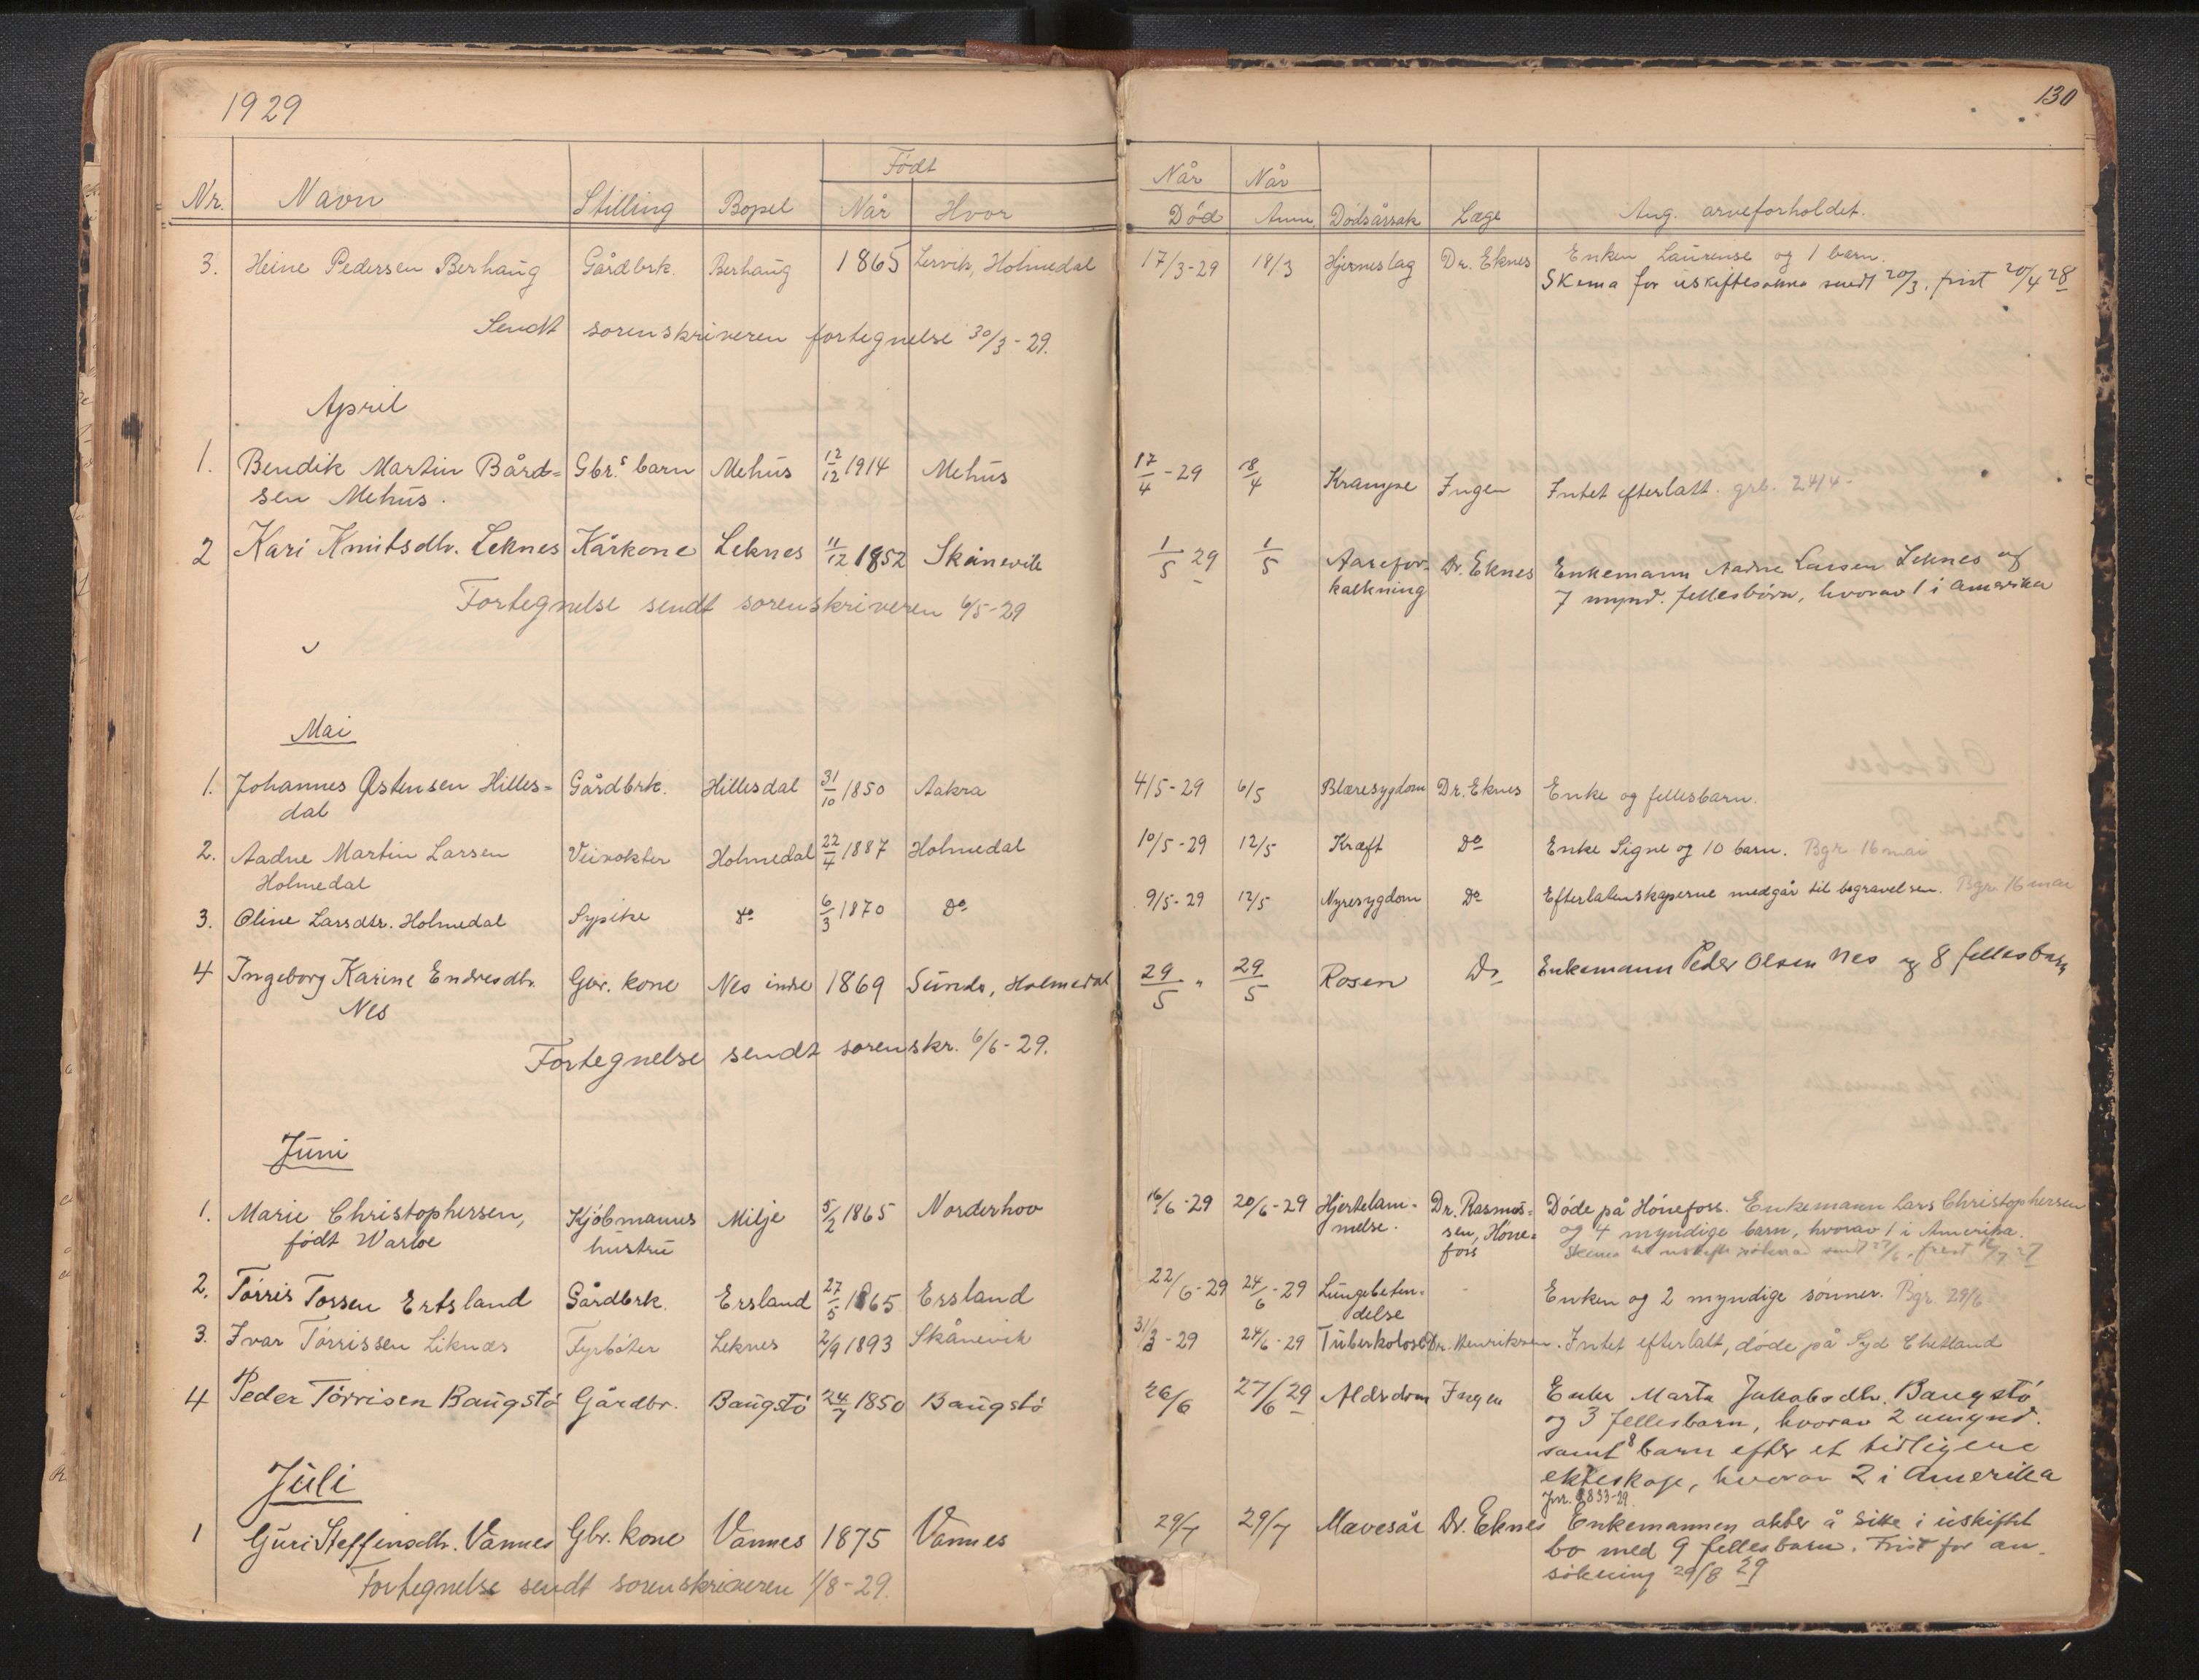 1929
130
Født
Når Når
Nr. Navn Stilling Bopel Når Hvor Død Anm. Dødsårsak Læge Ang. arveforholdet.
3. Heine Pedersen Berhaug Gårdbrk. Berhaug 1865 Lervik, Holmedal 17/3-29 19/3 Hjerneslag Dr. Eknes Enken Laurense og 1 barn.
Skema for uskiftesøkna sendt 20/3. frist 20/4 28
Sendt sorenskriveren fortegnelse 30/3-29.
April
1. Bendik Martin Bård= Gbr.s barn Mehus 12/12 1914 Mehus 17/4-29 18/4 Krampe Ingen Intet efterlatt. grb. 24/4-
sen Mehus.
2 Kari Knutsdtr. Leknes Kårkone Leknes 11/12 1852 Skånevik 1/5 29 1/5 Aarefor- Dr. Eknes Enkemann Aadne Larsen Leknes og
kalkning 7 mynd. fellesbørn, hvorav 1 i Amerika
Fortegnelse sendt sorenskriveren 6/5-29
Mai
1. Johannes Østensen Hilles= Gårdbrk. Hillesdal 31/10 1850 Aakra 4/5-29 6/5 Blæresygdom Dr. Eknes Enke og fellesbarn.
dal
2. Aadne Martin Larsen Veivokter Holmedal 22/4 1887 Holmedal 10/5-29 12/5 Kræft Do Enke Signe og 10 barn. Bgr 16 mai
Holmedal
3. Oline Larsdtr. Holmedal Sypike do 6/3 1870 Do. 9/5-29 12/5 Nyresygdom Do Efterlatenskaperne medgår til begravelsen. Bgr. 16 mai
4 Ingeborg Karine Endresdtr. Gbr. kone Nes indre 1869 Sunde, Holmedal 29/5 " 29/5 Rosen Do Enkemann Peder Olsen Nes og 8 fellesbarn
Nes
Fortegnelse sendt sorenskr. 6/6-29.
Juni
1. Marie Christophersen, Kjøbmanns Milje 5/2 1865 Norderhov 16/6-29 20/6-29 Hjertelam- Dr. Rasmus- Døde på Hønefoss. Enkemann Lars Christophersen
født Warloe hustru melse. sen, Høne= og 4 myndige barn, hvorav 1 i Amerika.
foss Skema sendt 27/6, frist
2. Tørris Torsen Ertsland Gårdbrk. Ersland 27/5 1865 Ersland 22/6-29 24/6-29 Lungebeten= - Enken og 2 myndige sønner. Bgr. 29/6
delse
3. Ivar Tørrissen Liknæs Fyrbøter Leknes 2/9 1893 Skånevik 31/3-29 24/6-29 Tuberkolose Dr. Henriksen. Intet efterlatt, døde på Syd Chetland
4 Peder Tørrisen Baugstø Gårdbr. Baugstø 24/7 1850 Baugstø 26/6 27/6 29 Alderdom Ingen Enke Marta Jakobsdtr. Baugstø
og 3 fellesbarn, hvorav 2 umynd.
samt 8 barn efter et tidligere
ekteskap, hvorav 2 i Amerika
Juli
Jnr. 833-29.
1 Guri Steffensdtr. Vannes Gbr. kone Vannes 1875 Vannes 29/7 29/7 Mavesår Dr. Eknes Enkemannen akter å sitte i uskiftet
bo med 9 fellesbarn. Frist for an-
søkning 29/8 29
Fortegnelse sendt sorenskriveren 1/8-29.